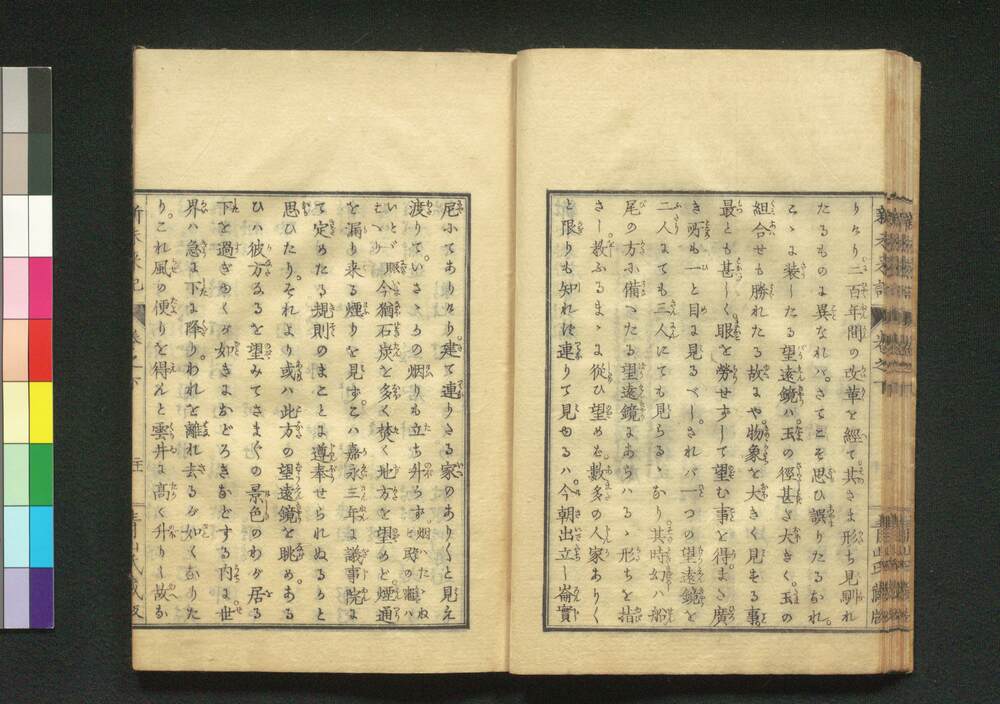 りたり二百年間の改革を經て其さま形ち見馴れ
たるものに異なれバ。さてこそ思ひ誤りたるなれ。
こゝに装したる望遠鏡ハ玉の徑甚さ大きく。玉の
組合せも勝れたる故にや。物象を大きく見する事
最とも甚しく。眼を勞せずして望む事を得。よさ廣
き所も一と目に見るべし。されバ一つの望遠鏡を
二人にても三人にても見らるゝなり。其時幻ハ船
尾の方に備へたる望遠鏡にあらハるゝ形ちを指
さし教ふるまゝに從ひ望めば數多の人家ありく
と限りも知れず連りて見ゆるハ。今朝出立し崙實
尼にてありけり。建て連りたる家のありくと見え
渡りて。いさゝかの烟りも立ち升らず。
いとゞ眼今猶石炭を多く焚く地方を望めど煙通
を漏り來る煙りを見ず。こハ嘉永三年に議事院に
て定めたる規則のまことに遵奉せられぬるかと
思ひたり。それより或ハ此方の望遠鏡を眺め。ある
ひハ彼方なるを望みてさまぐの景色のわが居る
下を過ぎゆくが如きにおどろきなどする内に世
界ハ急に下に降り。われを離れ去るが如くなりた
り。これ風の便りを得んと雲井に高く升りし故な
新未來記
卷之下
青山氏藏版